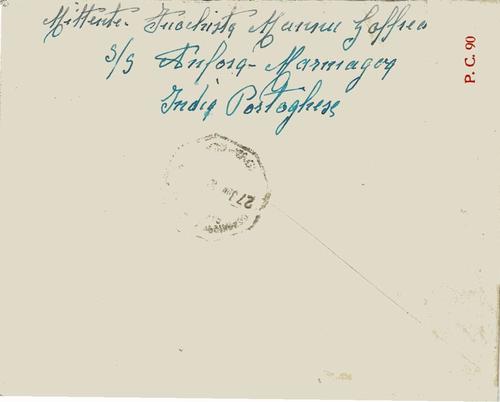 Mittente. Fuochista Mannu Goffreo
S/S Anfora - Marmagoa
India Portoghese
P. C. 90
27 JUN